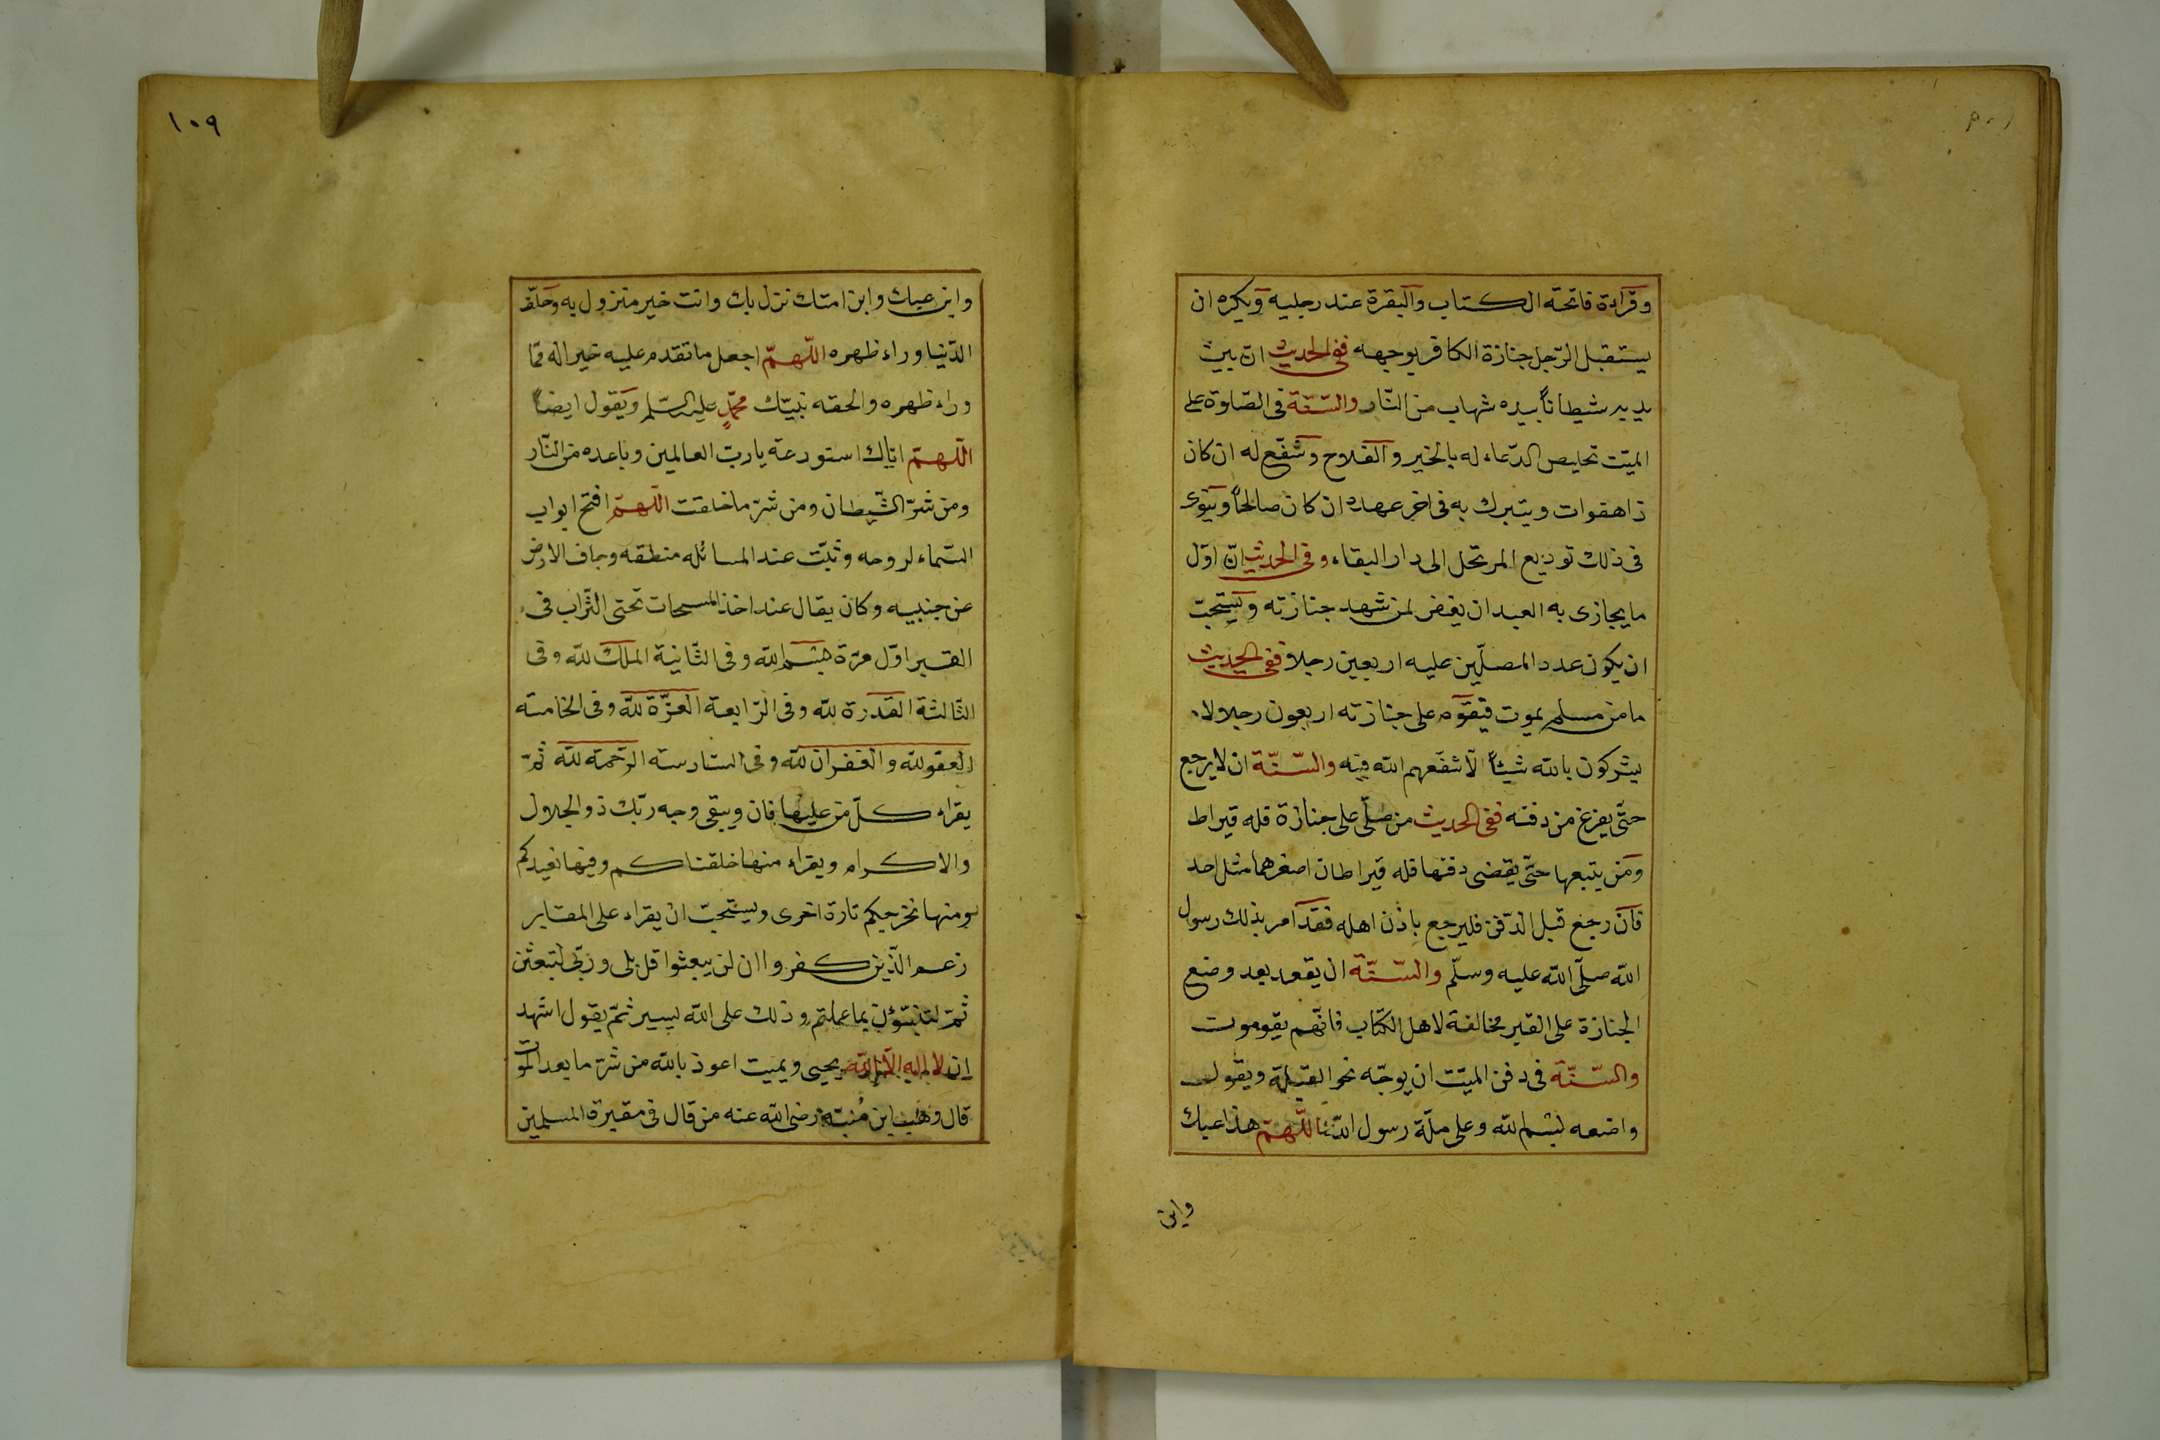 وقراءة فاتحة الكتاب والبقرة عند رجليه ويكره ان
يستقبل الرّجل جنازة الكافر بوجهه ففى الحديث انّ بين
يديه شيطاناً بيده شهاب من النّار والسّنّة فى الصّلوة على
الميّت تخليص الدّعاء له بالخير والفلاح وشفّع له ان كان
ذا هفوات ويتبرك به فى اخر عهده ان كان صالحاً وينوى
فى ذلك توديع المرتحل الى دار البقاء وفى الحديث انّ اوّل
ما يجازى به العبد ان يغفر لمن شهد جنازته ويستحبّ
ان يكون عدد المصلّين عليه اربعين رجلا ففى الحديث
ما من مسلم يموت فيقوم على جنازته اربعون رجلا لا
يشركون بالله شيئاً الّا شفّعهم الله فيه والسّنّة ان لا يرجع
حتّى يفرغ من دفنه ففى الحديث من صلّى على جنازة فله قيراط
ومن يتبعها حتّى يقضى دفنها فله قيراطان اصغرهما مثل احد
فان رجع قبل الدّفن فليرجع باذن اهله فقد امر بذلك رسول
الله صلّى الله عليه وسلّم والسّنّة ان يقعد بعد وضع
الجنازة على القبر مخالفة لاهل الكتاب فانّهم يقومون
والسّنّة فى دفن الميّت ان يوجّه نحو القبلة ويقول
واضعه بسم الله وعلى ملّة رسول الله اللّهمّ هذا عبدك
وابن
١٠٩
وابن عبدك وابن امتك نزل بك وانت خير منزول به وخلّف
الدّنيا وراء ظهره اللّهمّ اجعل ما تقدم عليه خيرا له ممّا
وراء ظهره والحقه بنبيّك محمّدٍ عليه السّلم ويقول ايضاً
اللّهمّ انّاك استودعة يا ربّ العالمين وباعده من النّار
ومن شرّ الشّيطان ومن شرّ ما خلقت اللّهمّ افتح ابواب
السّماء لروحه وثبّت عند المسائله منطقه وجاف الارض
عن جنبيه وكان يقال عند اخذ المسحات تحتى التّراب فى
القبر اوّل مرّة بسم الله وفى الثّانية الملك لله وفى
الثّالثة القدرة لله وفى الرّابعة العزّة لله وفى الخامسة
العفو لله والغفران لله وفى السّادسة الرّحمة لله ثمّ
يقراء كلّ من عليها فان ويبقى وجه ربّك ذو الجلال
والاكرام ويقراء منها خلقناكم وفيها نعيدكم
ومنها نخرجكم تارة اخرى ويستحبّ ان يقراء على المقابر
زعم الّذين كفروا ان لن يبعثوا قل بلى وربّى لتبعثنّ
ثمّ لتنبّؤنّ بما عملتم وذلك على الله يسير ثمّ يقول اشهد
ان لا اله الّا الله يحيى ويميت اعوذ بالله من شرّ ما بعد الموت
قال وهب ابن مُنبّه رضى الله عنه من قال فى مقبرة المسلمين